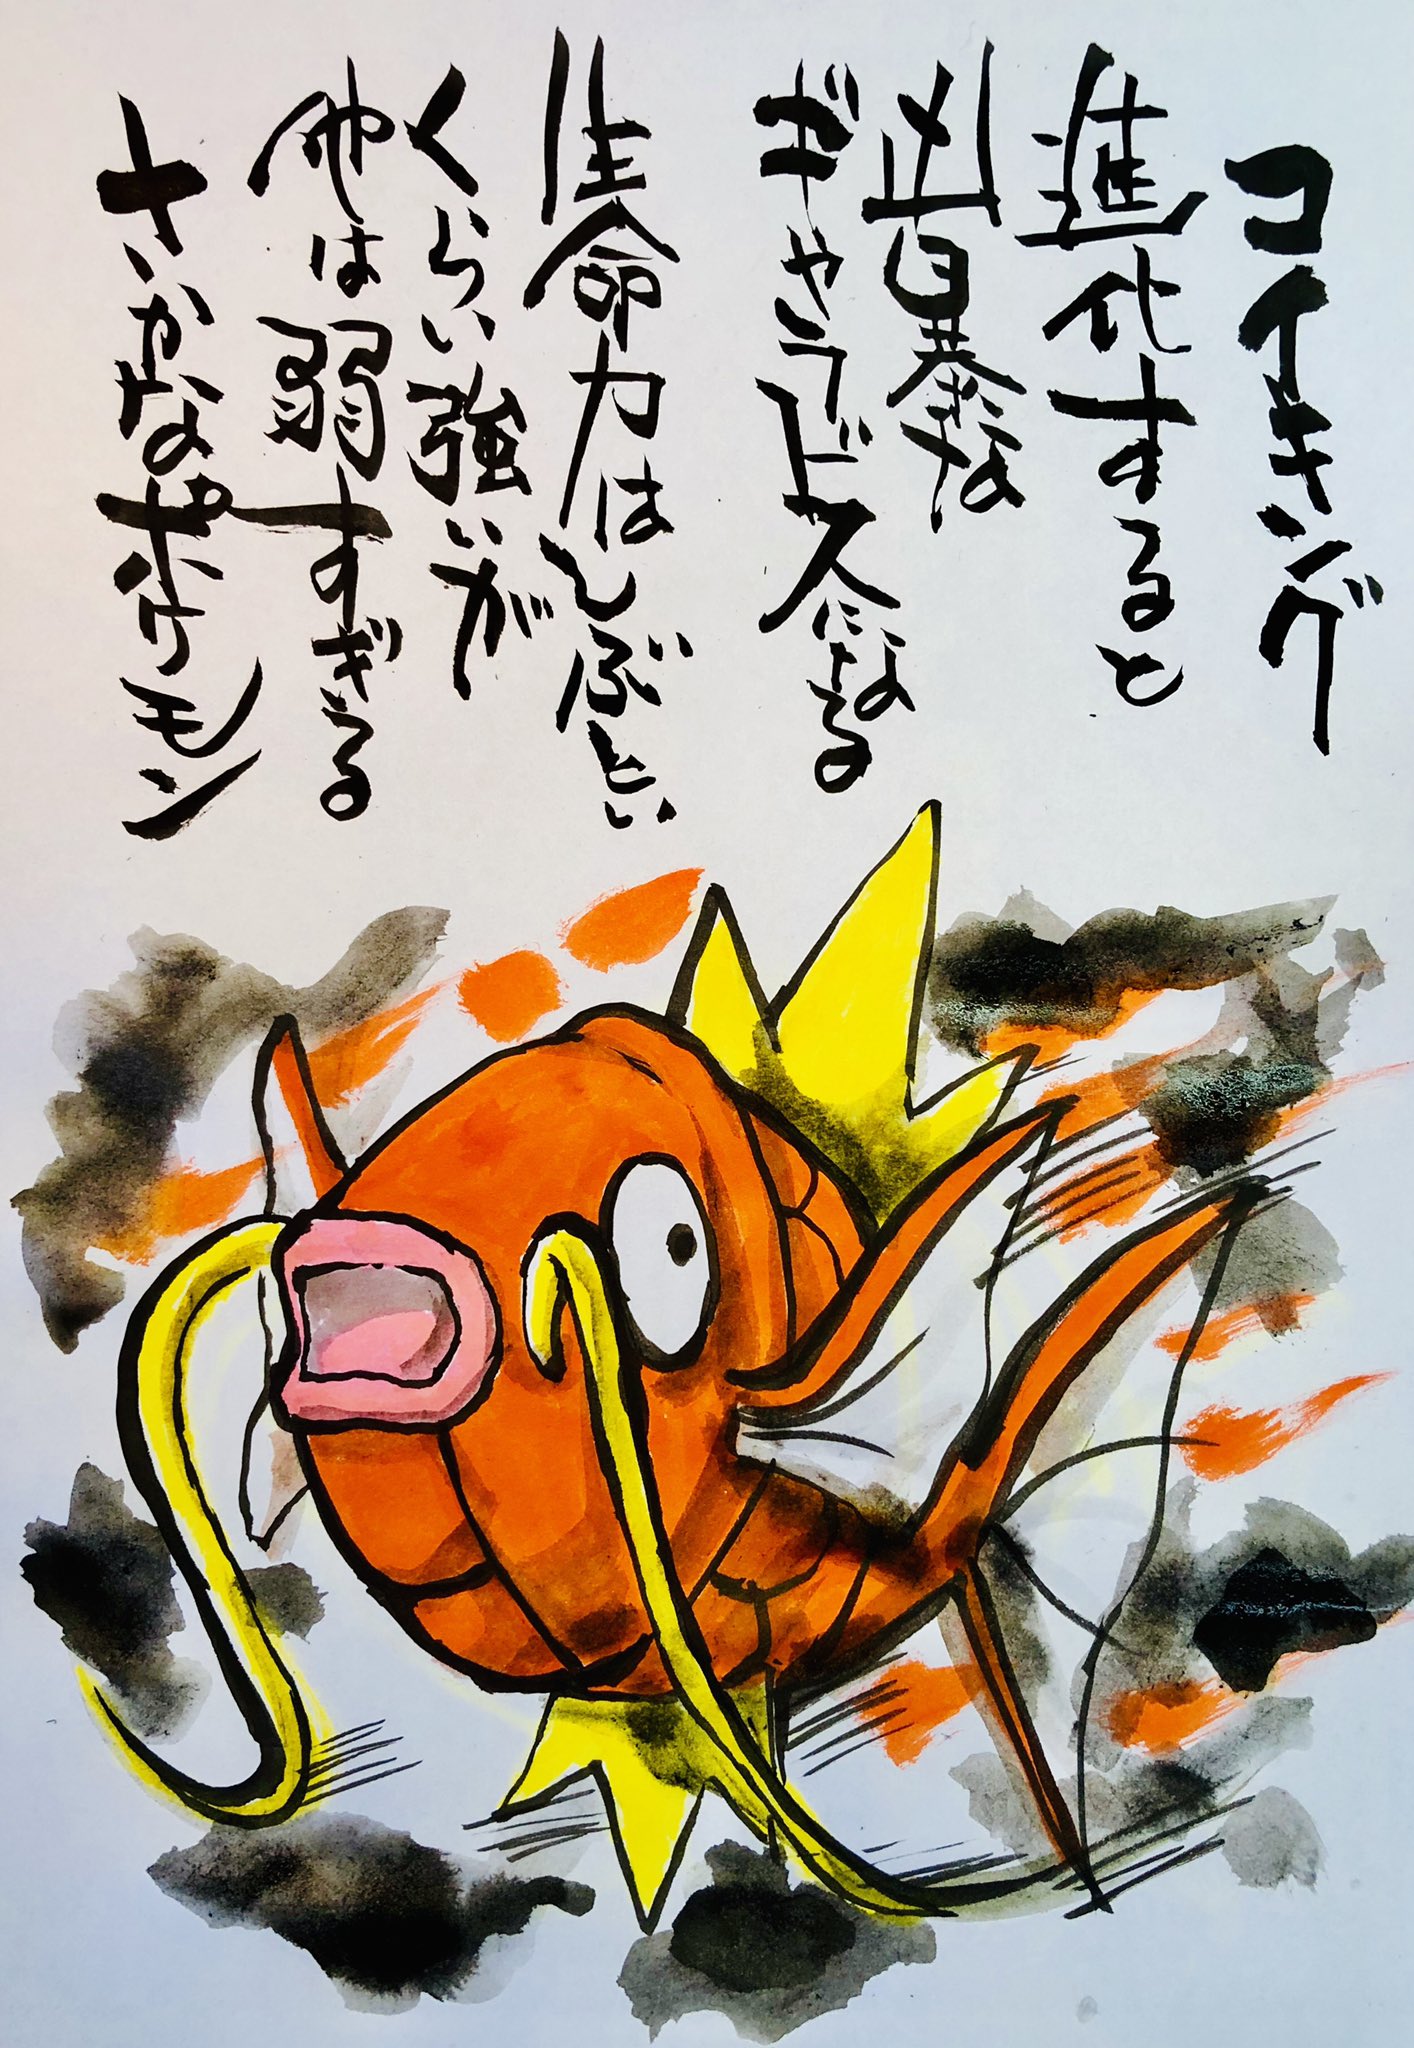 コイキング
進化すると
凶暴な
ギャラドスになる
生命力はしぶとい
くらい強いが
他は弱すぎる
さかなポケモン